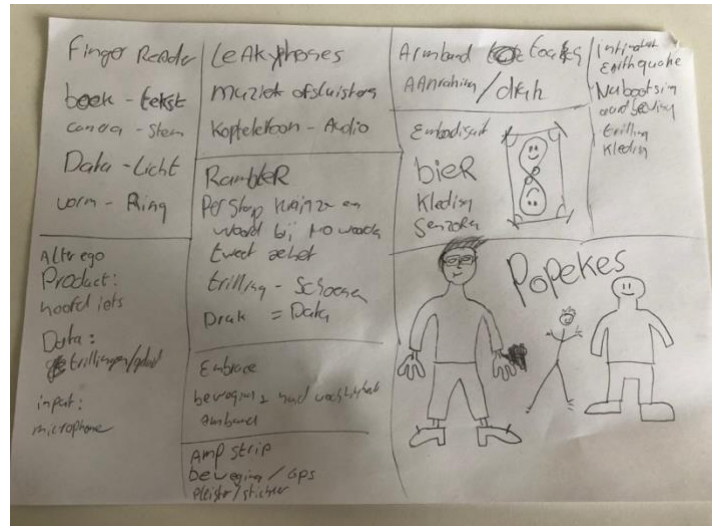 Finger Reader
boek - tekst
camera - stem
Data - Licht
vorm - Ring
Alter ego
Product:
hoofd iets
Data:
trillingen/geluid
input:
microphone
Leakyphones
muziek afsluisteren
koptelefoon - Audio
RambleR
Per stap
woord bij
tweet
trilling - Schoenen
Druk = Data
Embrace
Armband
Amp strip
beweging / GPS
pleister/sticker
Armband
Aanraking/druk
bieR
Kleding
Sensoren
Earthquake
Nabootsing
aardbeving
trilling
Kleding
Popekes